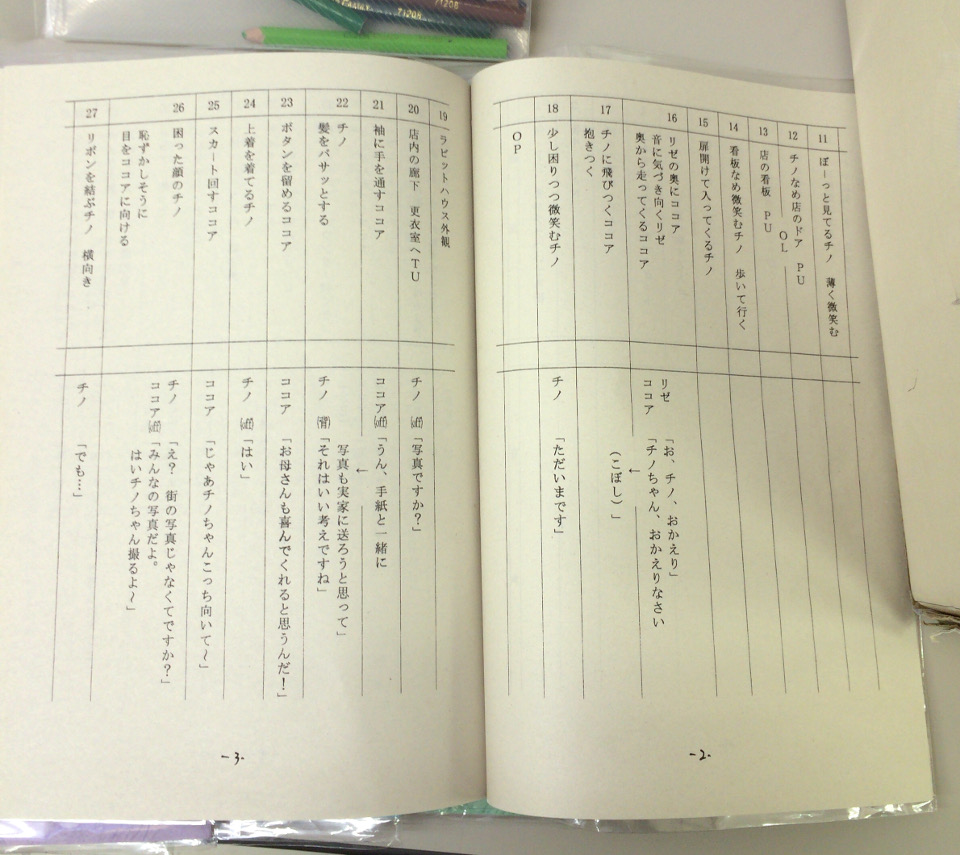 71208
71208
11
ぼーっと見てるチノ 薄く微笑む
12
チノなめ店のドア PU
OL
13
店の看板 PU
14
看板なめ微笑むチノ 歩いて行く
15
扉開けて入ってくるチノ
16
リゼの奥にココア
音に気づき向くリゼ
奥から走ってくるココア
リゼ 「お、チノ、おかえり」
ココア 「チノちゃん、おかえりなさい
←
(こぼし)」
17
チノに飛びつくココア
抱きつく
18
少し困りつつ微笑むチノ
チノ 「ただいまです」
OP
-2-
19
ラビットハウス外観
20
店内の廊下 更衣室へTU
チノ(off)「写真ですか?」
21
袖に手を通すココア
ココア(off)「うん、手紙と一緒に
←
写真も実家に送ろうと思って」
22
チノ
髪をバサッとする
チノ(背)「それはいい考えですね」
23
ボタンを留めるココア
ココア 「お母さんも喜んでくれると思うんだ!」
24
上着を着てるチノ
チノ(off)「はい」
25
スカート回すココア
ココア 「じゃあチノちゃんこっち向いて~」
26
困った顔のチノ
恥ずかしそうに
目をココアに向ける
チノ 「え? 街の写真じゃなくてですか?」
ココア(off)「みんなの写真だよ。
はいチノちゃん撮るよ~」
27
リボンを結ぶチノ 横向き
チノ 「でも…」
-3-